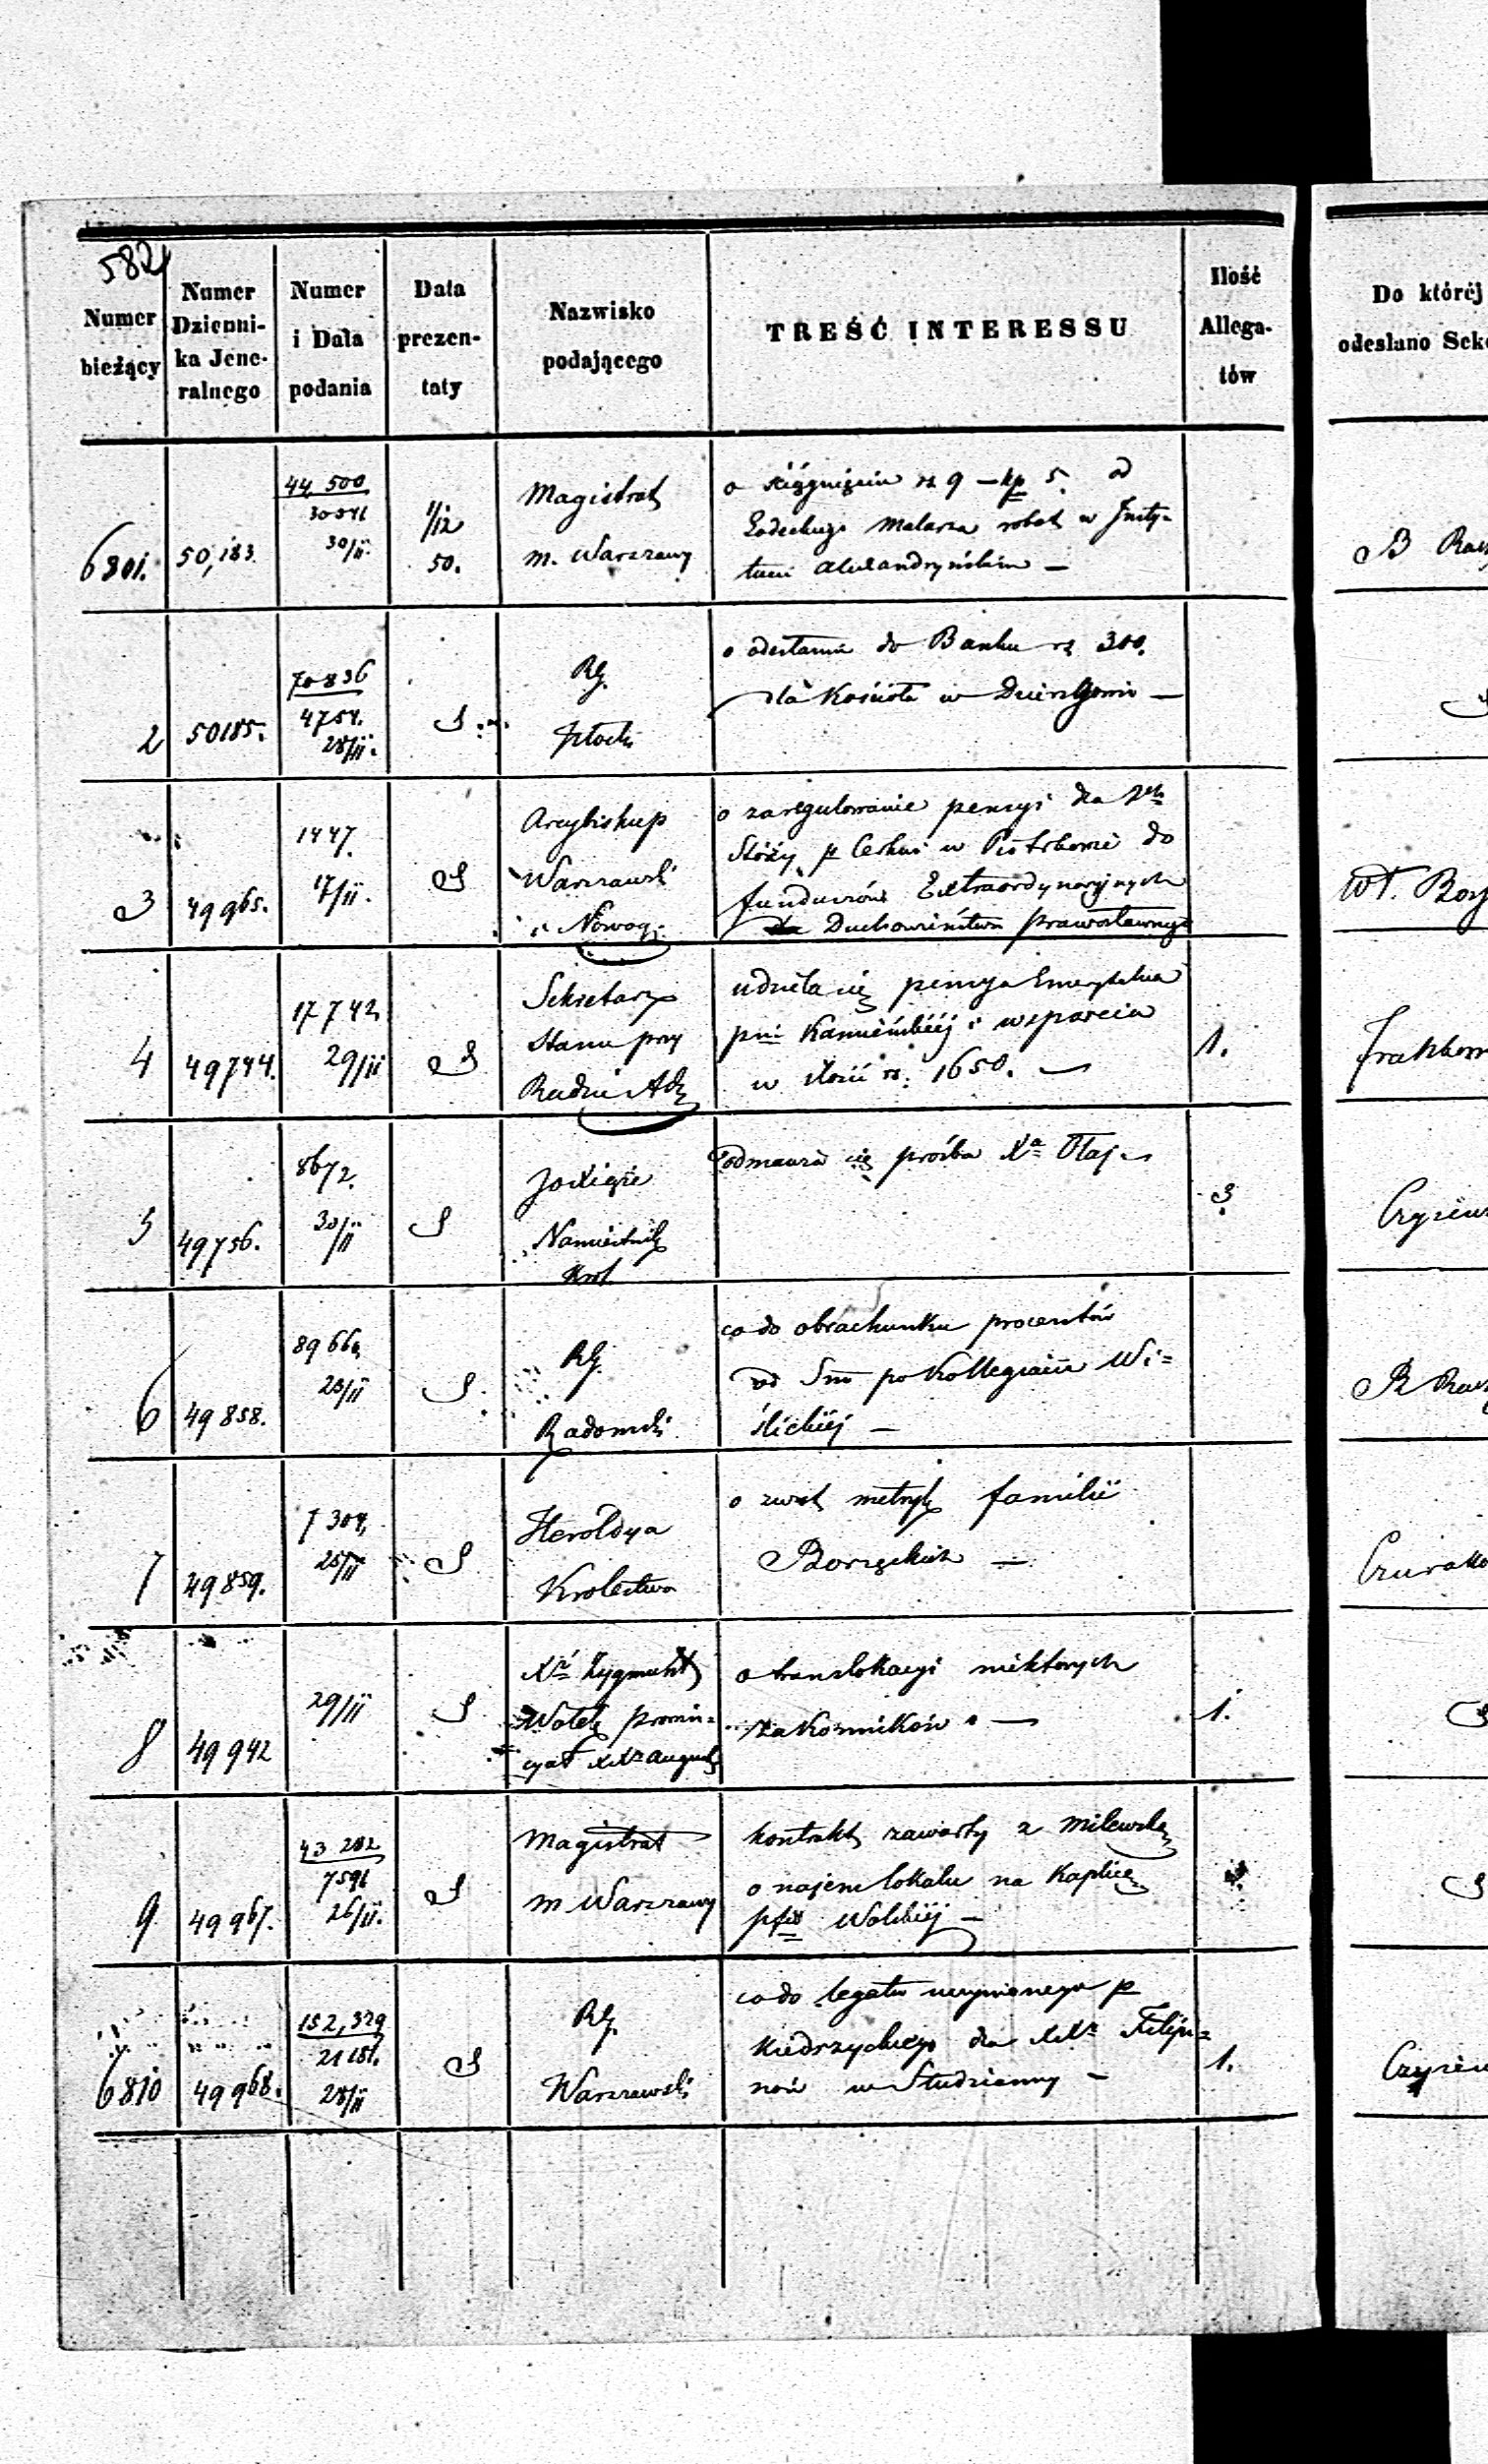 582
Numer bieżący
Numer Dzienni-
ka Jene-
ralnego
Numer
i Data
podania
Data
prezen-
taty
Nazwisko
podającego
TREŚĆ INTERESSU
Ilość
Allega-
tów
Do której
odesłano Sek
6801. 50,183. 44,500 30/11. 1/12 50.
Magistrat
m. Warszawy
o ściągnięcie rs 9 – kp 5. od
malarza robot w Insty-
tucie Alexandryńskim –
2 50185. 70836 4754. 28/11.
RG.
Płocki
o odesłanie do Banku rs 300.
dla Kościoła w –
3 49965. 1447. 17/11.
Arcybiskup
Warszawski
i Nowog.
o zaregulowanie pensyi dla
Stróży p Cerkwi w Piotrkowie do
funduszów Extraordynaryjnych
Duchowieństwa prawosławnego
Wł.
4 49744. 17742 29/11
Sekretarz
Stanu przy
Radzie Adm
udziela się pensya Emerytalna
pni Kamieńskiéj i wsparcie
w ilości rs. 1650. –
1.
5 49756. 8672. 30/11
JO Xiąże
Namiestnik
Król
odmawia się prośba Xa
6 49858. 8966 28/11
RG.
Radomski
co do obrachunku procentów
od Sum po Kollegiacie Wi-
ślickiéj –
7 49859. 7304, 25/11
Heroldya
Królestwa
o zwrot metryk familii
Borzęckich –
8 49942 29/11
Xdz Zygmunt
prowin-
cyał XXów August
o translokacyi niektórych
zakonników –
1.
9 49967. 43282 7591 26/11.
Magistrat
m Warszawy
kontrakt zawarty z Milewską
o najem lokalu na Kaplicę
pfii Wolskiéj –
6810 49968. 152,329 21151. 28/11
RG.
Warszawski
co do legatu uczynionego p
Kiedrzyckiego dla XXów Filipi-
nów w Studzianny –
1.